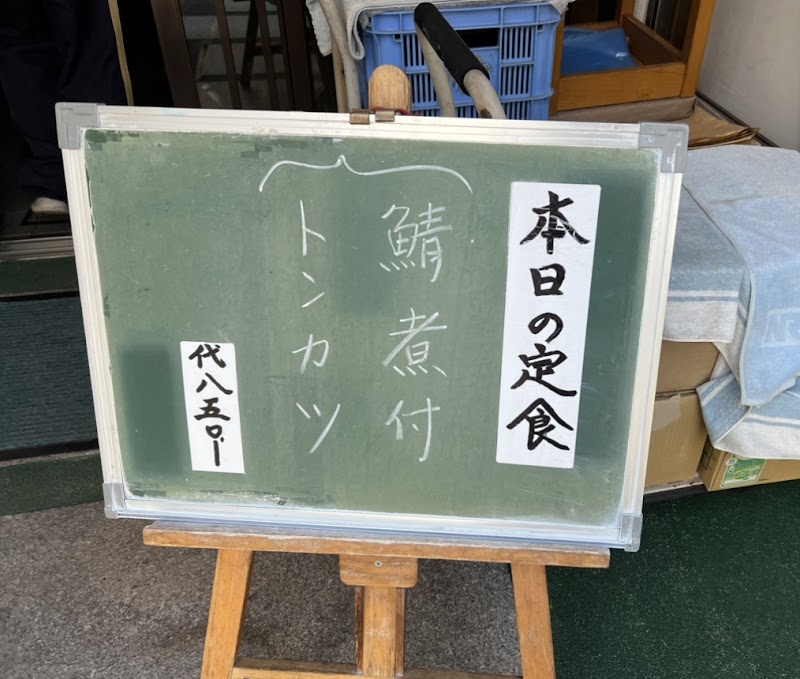 本日の定食
鯖煮付
トンカツ
代八五〇ー